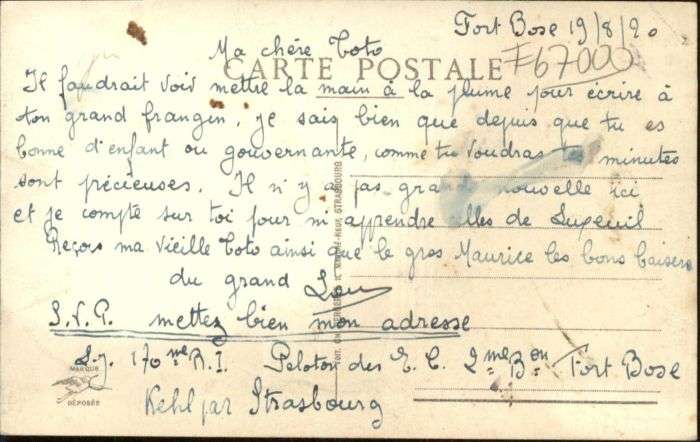 Fort Bose 19/8/20
Ma chère Toto
CARTE POSTALE
F67000
Il faudrait voir mettre la main à la plume pour écrire à
ton grand frangin, je sais bien que depuis que tu es
bonne d'enfant ou gouvernante, comme tu voudras tes minutes
sont précieuses. Il n'y a pas grande nouvelle ici
et je compte sur toi pour m'apprendre celles de Luxeuil
Reçois ma vieille Toto ainsi que le gros Maurice les bons baisers
du grand
S.V.P. mettez bien mon adresse
170me R.I. Peloton des E.C. 2me Bon Fort Bose
Kehl par Strasbourg
MARQUE
DÉPOSÉE
STRASBOURG